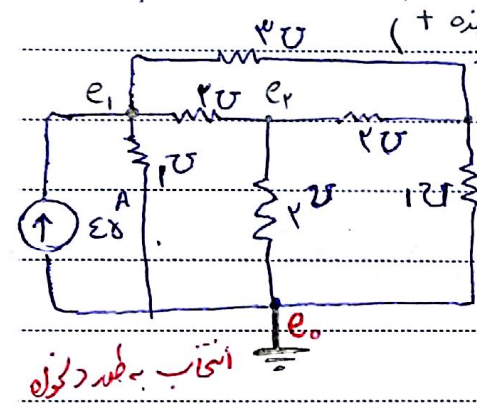 + )
۳℧
e₁
۲℧
e₂
۲℧
۱℧
۲℧
۱℧
۴۵ A
e₀
انتخاب به طور دلخواه